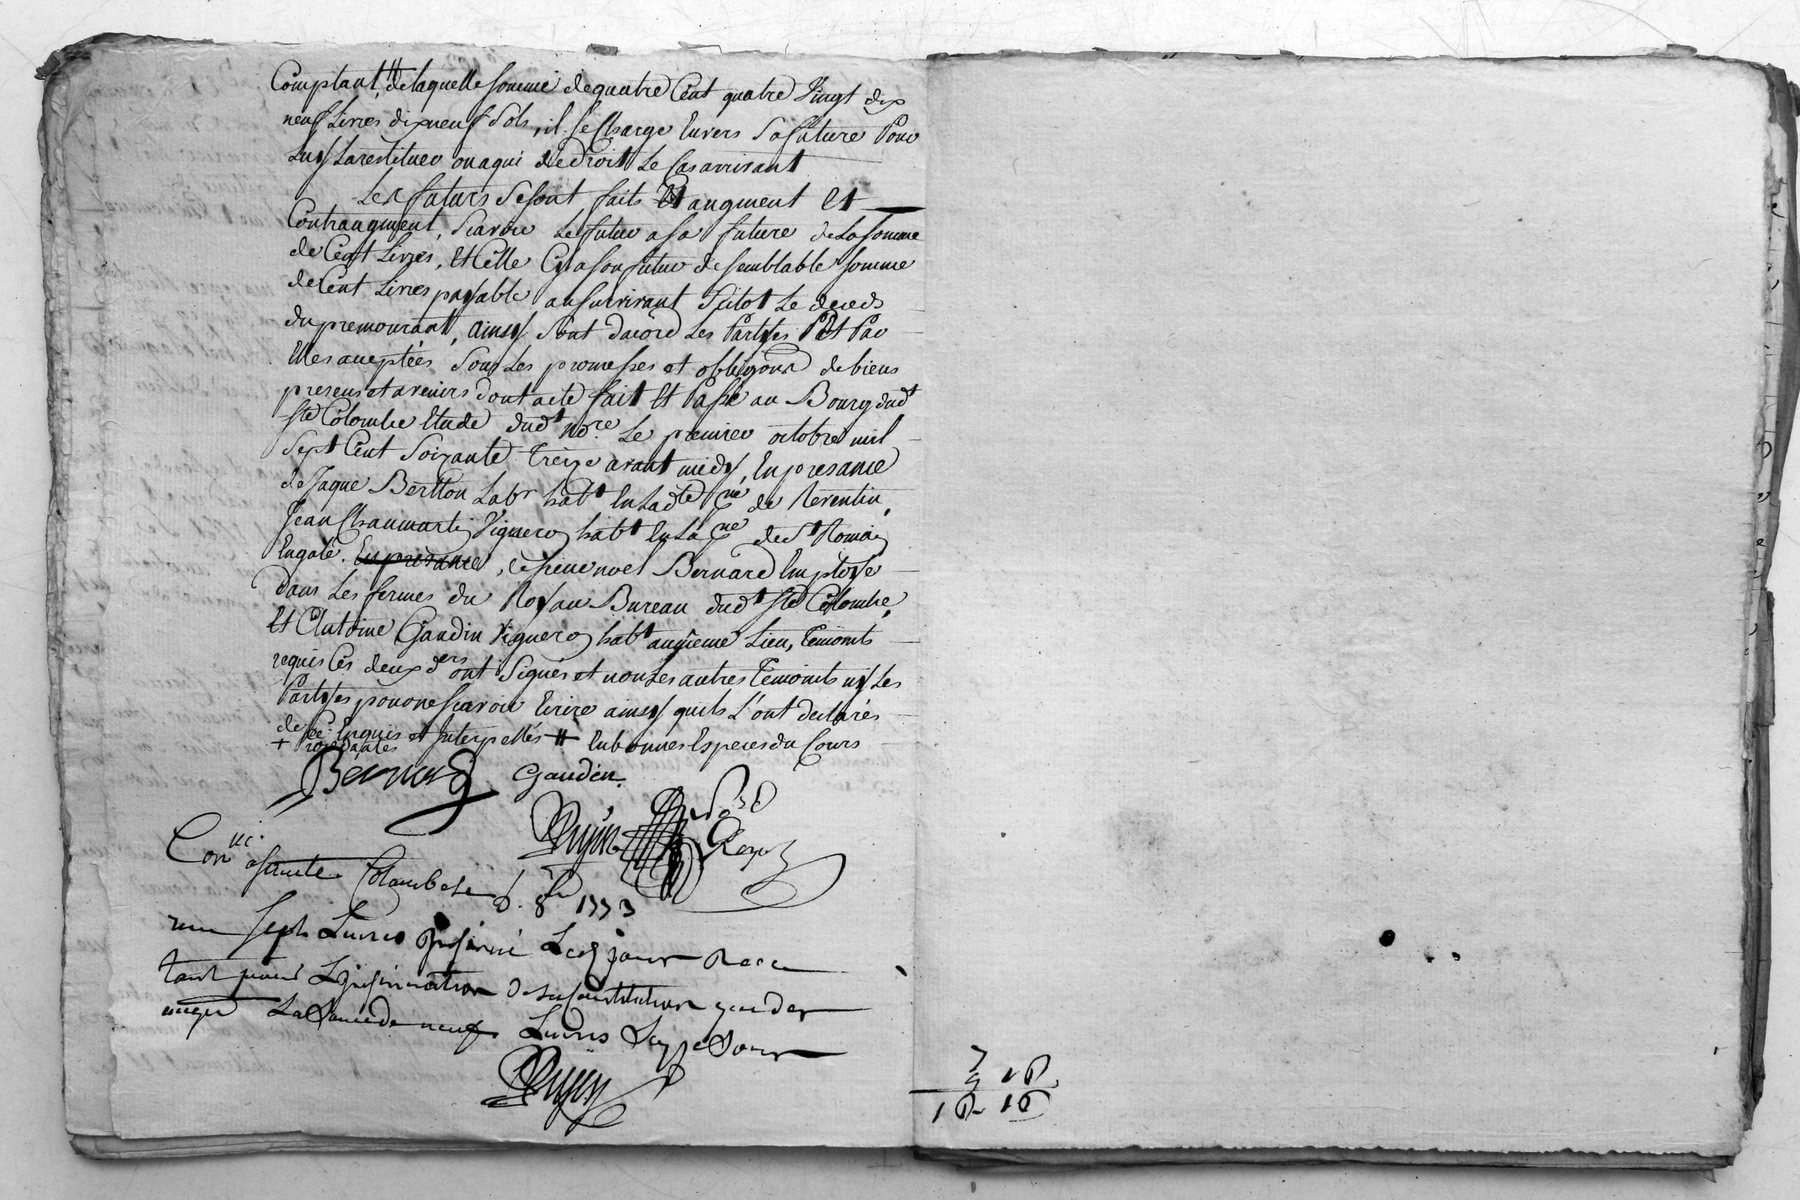 Comptant, # de laquelle somme de quatre Cent quatre Vingt dix
neuf Livres dixneuf Sols, il se Charge Envers Sa future Pour
Luy La restituer ou a qui de droit Le Cas arrivant
Les futurs se sont faits Et augment Et
Contraugment, Scavoir Le futur a sa future de La somme
de Cent Livres, Et Celle Cy a son futur de semblable somme
de Cent Livres payable au survivant Sitot Le deceds
du premourant, ainsy Sont dacord Les Partyes Et Par
Elles acceptées Sous Les promesses et obligōns de biens
presens et avenirs dont acte fait Et Passé au Bourg dud.t
Ste Colombe Etude dud.t No.re Le premier octobre mil
Sept Cent Soixante Treize avant midy, En presance
de Jaque Berthon Lab.r hab.t En Lad.te P.ne de Reventin,
Jean Chaumartin Vigneron hab.t En La P.ne de S.t Romain
Engale. En presance, de sieur noel Bernard Employe
dans Les fermes du Roy au Bureau dud.t Ste Colombe,
Et Antoine Gaudin Vigneron hab.t au meme Lieu, Temoints
requis Ces deux d.ers ont Signés et non Les autres Temoints ny Les
Partyes pour ne Scavoir Ecrire ainsy quils L'ont declarés
de ce Enquis et Interpellés # En bonnes Especes du Cours
+ Procedantes
Bernard Gaudin
Con.llé a Sainte Colombe Le 6. 8bre 1773
reçu Sept Livres Insinué Led jour Reçu
tant pour L'insinuation de La Constitution que de
augt La Somme de neuf Livres Seize Sous
7
9 16
16 16